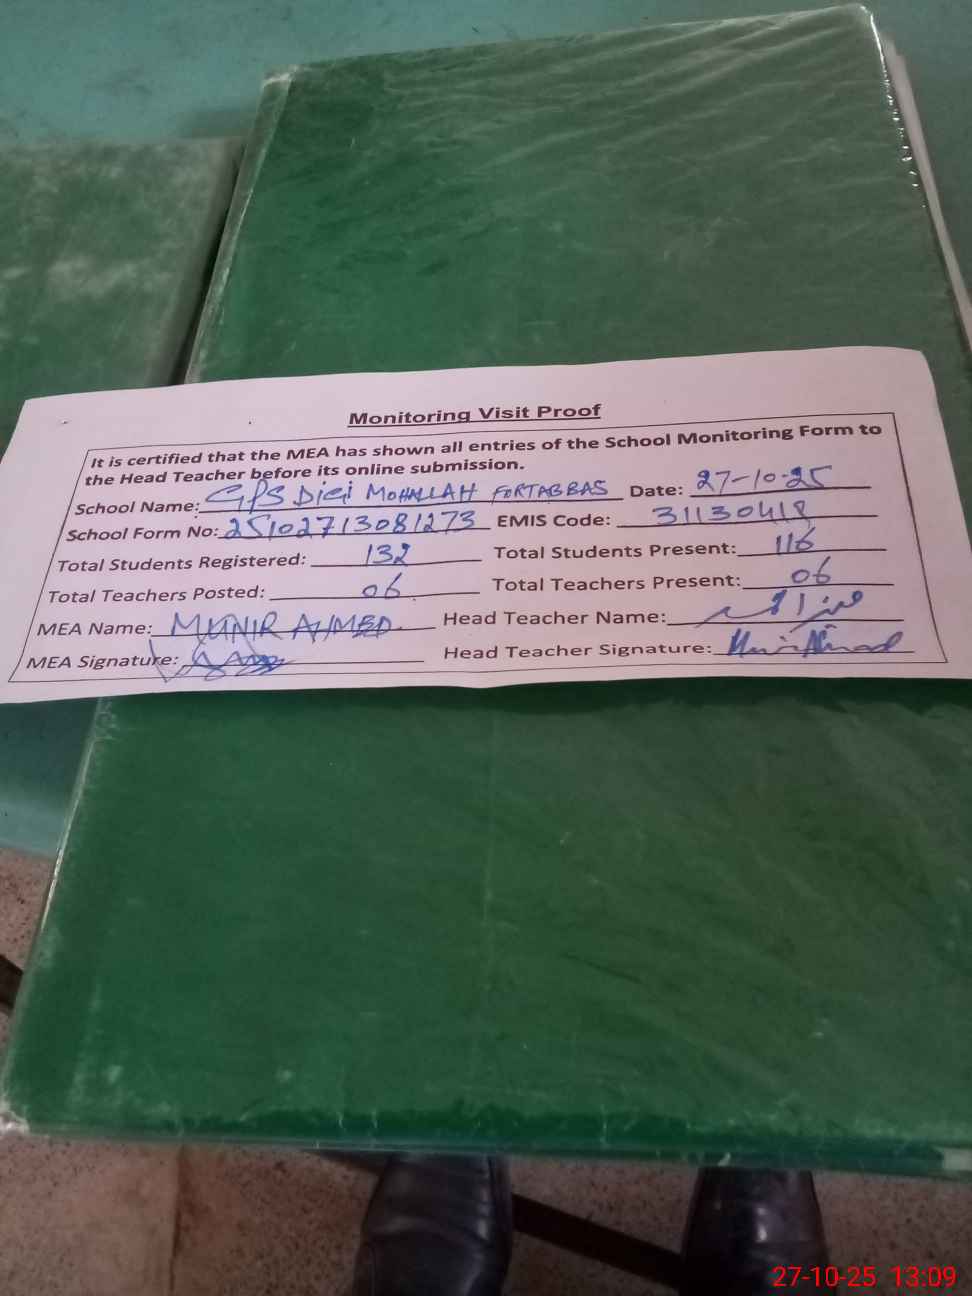 Monitoring Visit Proof
It is certified that the MEA has shown all entries of the School Monitoring Form to
the Head Teacher before its online submission.
School Name: GPS Digi MOHALLAH FORTABBAS Date: 27-10-25
School Form No: 25102713081273 EMIS Code: 31130418
Total Students Registered: 132 Total Students Present: 116
Total Teachers Posted: 06 Total Teachers Present: 06
MEA Name: MUNIR AHMED Head Teacher Name:
MEA Signature: Head Teacher Signature:
27-10-25 13:09